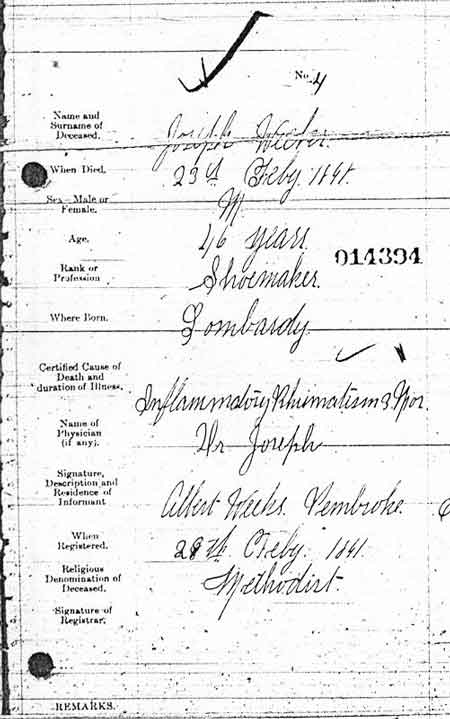 No. 4
Name and
Surname of
Deceased.
Joseph
When Died.
23rd Feby.
Sex—Male or
Female.
M.
Age.
46 years.
014394
Rank or
Profession
Shoemaker.
Where Born.
Lombardy
Certified Cause of
Death and
duration of Illness.
Inflammatory Rhumatism 3
Name of
Physician
(if any).
Dr Joseph
Signature,
Description and
Residence of
Informant
Albert Weeks. Pembroke.
When
Registered.
28th Feby.
Religious
Denomination of
Deceased.
Methodist.
Signature of
Registrar.
REMARKS.